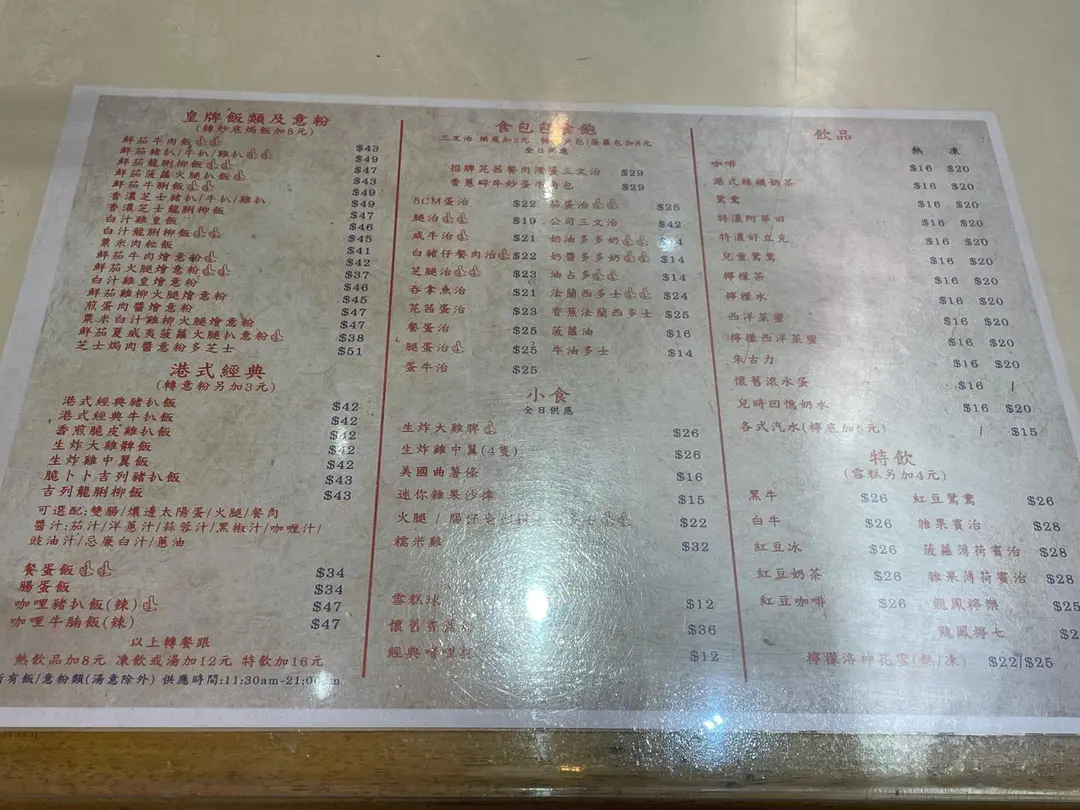 皇牌飯類及意粉
(轉炒底焗飯加8元)
鮮茄牛肉飯 $43
鮮茄豬扒/牛扒/雞扒 $49
鮮茄龍脷柳飯 $47
鮮茄菠蘿火腿扒飯 $43
鮮茄牛脷飯 $49
香濃芝士豬扒/牛扒/雞扒 $49
香濃芝士龍脷柳飯 $47
白汁雞皇飯 $46
白汁龍脷柳飯 $45
粟米肉粒飯 $41
鮮茄牛肉燴意粉 $42
鮮茄火腿燴意粉 $37
白汁雞皇燴意粉 $46
鮮茄雞柳火腿燴意粉 $45
煎蛋肉醬燴意粉 $47
粟米白汁雞柳火腿燴意粉 $47
鮮茄夏威夷菠蘿火腿扒意粉 $38
芝士焗肉醬意粉多芝士 $51
港式經典
(轉意粉另加3元)
港式經典豬扒飯 $42
港式經典牛扒飯 $42
香煎脆皮雞扒飯 $42
生炸大雞髀飯 $42
生炸雞中翼飯 $42
脆卜卜吉列豬扒飯 $43
吉列龍脷柳飯 $43
可選配:雙腸/燶邊太陽蛋/火腿/餐肉
醬汁:茄汁/洋蔥汁/蒜蓉汁/黑椒汁/咖喱汁/
豉油汁/忌廉白汁/蔥油
餐蛋飯 $34
腸蛋飯 $34
咖哩豬扒飯(辣) $47
咖哩牛腩飯(辣) $47
以上轉餐跟
熱飲品加8元 凍飲或湯加12元 特飲加16元
所有飯/意粉類(湯意除外) 供應時間:11:30am-21:00pm
食包包食飽
三文治 烘底加2元 包/菠蘿包加8元
全日供應
招牌芫茜餐肉滑蛋三文治 $29
香蔥碎牛炒蛋牛角包 $29
5CM蛋治 $22 茄蛋治 $25
腿治 $19 公司三文治 $42
咸牛治 $21 奶油多多奶
白豬仔餐肉治 $22 奶醬多多奶 $14
芝腿治 $23 油占多 $14
吞拿魚治 $21 法蘭西多士 $24
芫茜蛋治 $23 香蕉法蘭西多士 $25
餐蛋治 $25 菠蘿油 $16
腿蛋治 $25 牛油多士 $14
蛋牛治 $25
小食
全日供應
生炸大雞髀 $26
生炸雞中翼(4隻) $26
美國曲薯條 $16
迷你雜果沙律 $15
火腿 / 腸仔 $22
糯米雞 $32
雪糕球 $12
懷舊香蕉船 $36
經典啫喱杯 $12
飲品
熱 凍
咖啡 $16 $20
港式絲襪奶茶 $16 $20
鴛鴦 $16 $20
特濃阿華田 $16 $20
特濃好立克 $16 $20
兒童鴛鴦 $16 $20
檸檬茶 $16 $20
檸檬水 $16 $20
西洋菜蜜 $16 $20
檸檬西洋菜蜜 $16 $20
朱古力 $16 $20
懷舊滾水蛋 $16 /
兒時回憶奶水 $16 $20
各式汽水(檸底加5元) / $15
特飲
(雪糕另加4元)
黑牛 $26 紅豆鴛鴦 $26
白牛 $26 雜果賓治 $28
紅豆冰 $26 菠蘿薄荷賓治 $28
紅豆奶茶 $26 雜果薄荷賓治 $28
紅豆咖啡 $26 龍鳳檸樂 $25
龍鳳檸七
檸檬洛神花蜜(熱/凍) $22/$25